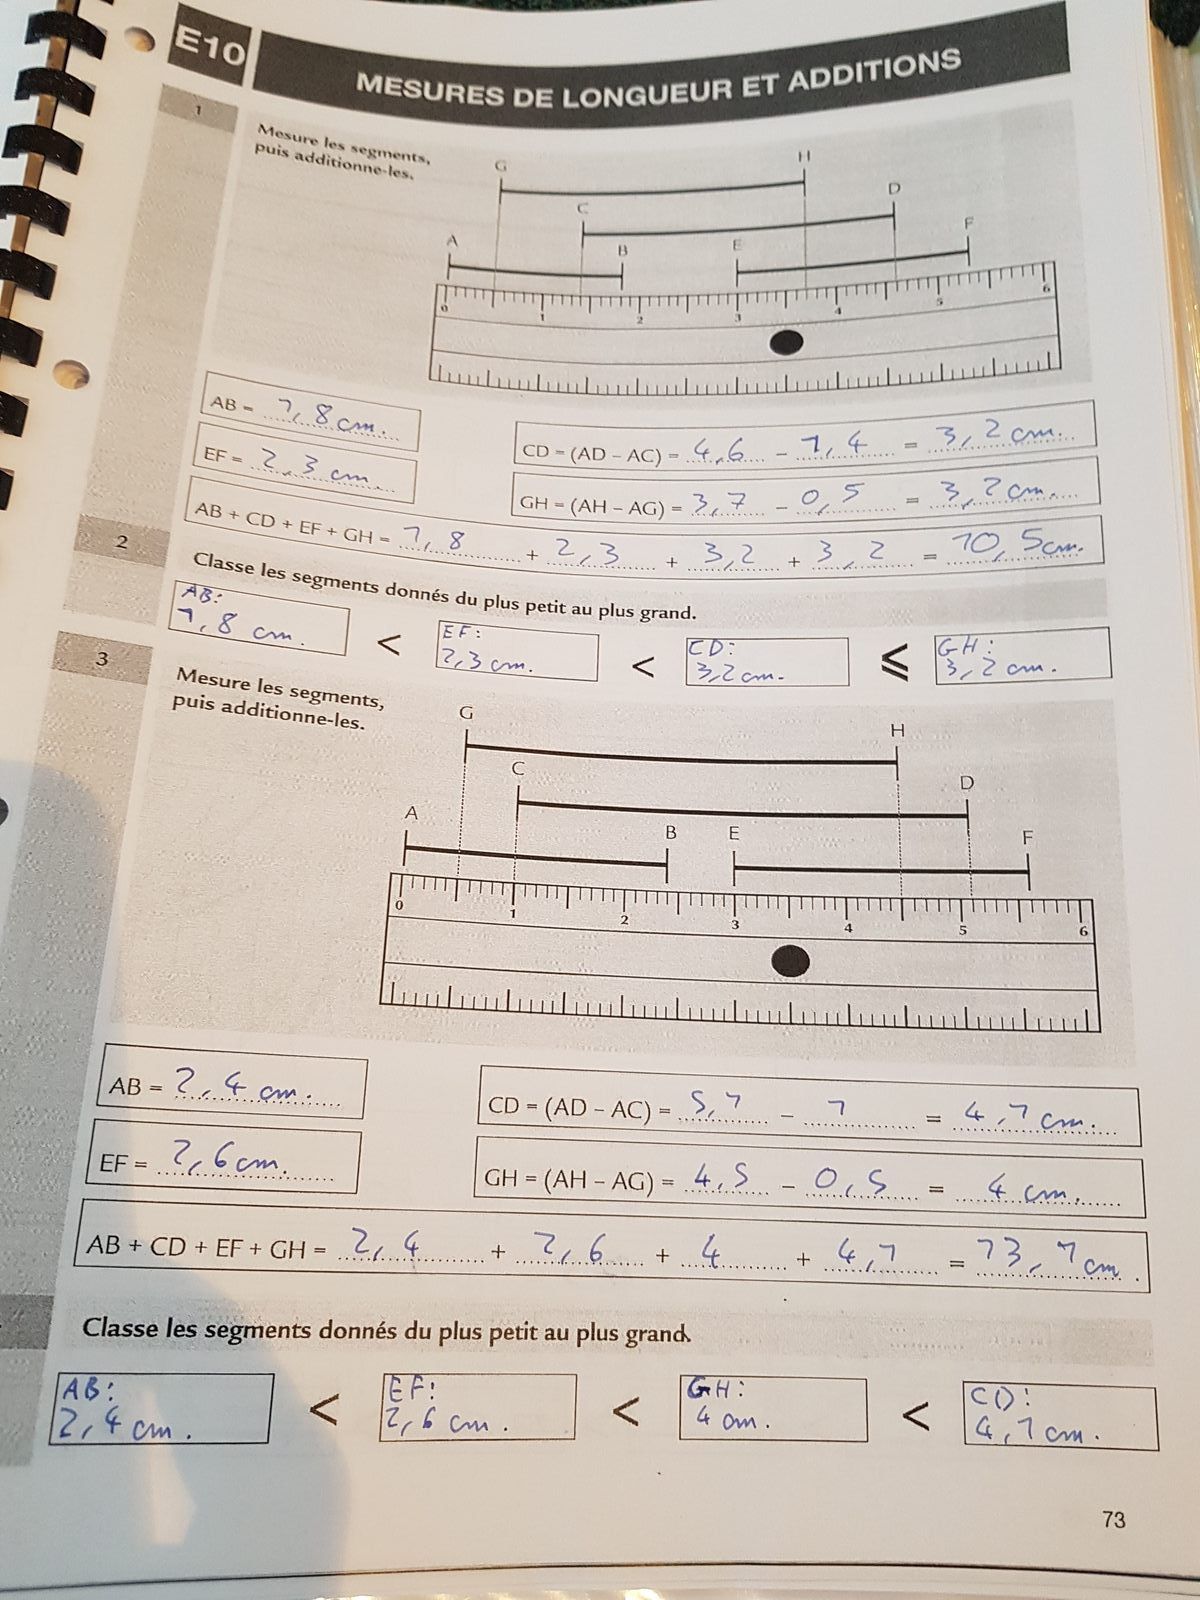 E10
MESURES DE LONGUEUR ET ADDITIONS
1
Mesure les segments,
puis additionne-les.
G H
C D
A B E F
0 1 2 3 4 5 6
AB = 1,8 cm.
CD = (AD – AC) = 4,6 – 1,4 = 3,2 cm.
EF = 2,3 cm.
GH = (AH – AG) = 3,7 – 0,5 = 3,2 cm.
AB + CD + EF + GH = 1,8 + 2,3 + 3,2 + 3,2 = 10,5 cm.
2
Classe les segments donnés du plus petit au plus grand.
AB: EF: CD: GH:
1,8 cm. < 2,3 cm. < 3,2 cm. ⩽ 3,2 cm.
3
Mesure les segments,
puis additionne-les.
G H
C D
A B E F
0 1 2 3 4 5 6
AB = 2,4 cm.
CD = (AD – AC) = 5,1 – 1 = 4,1 cm.
EF = 2,6 cm.
GH = (AH – AG) = 4,5 – 0,5 = 4 cm.
AB + CD + EF + GH = 2,4 + 2,6 + 4 + 4,1 = 13,1 cm.
Classe les segments donnés du plus petit au plus grand.
AB: EF: GH: CD:
2,4 cm. < 2,6 cm. < 4 cm. < 4,1 cm.
73